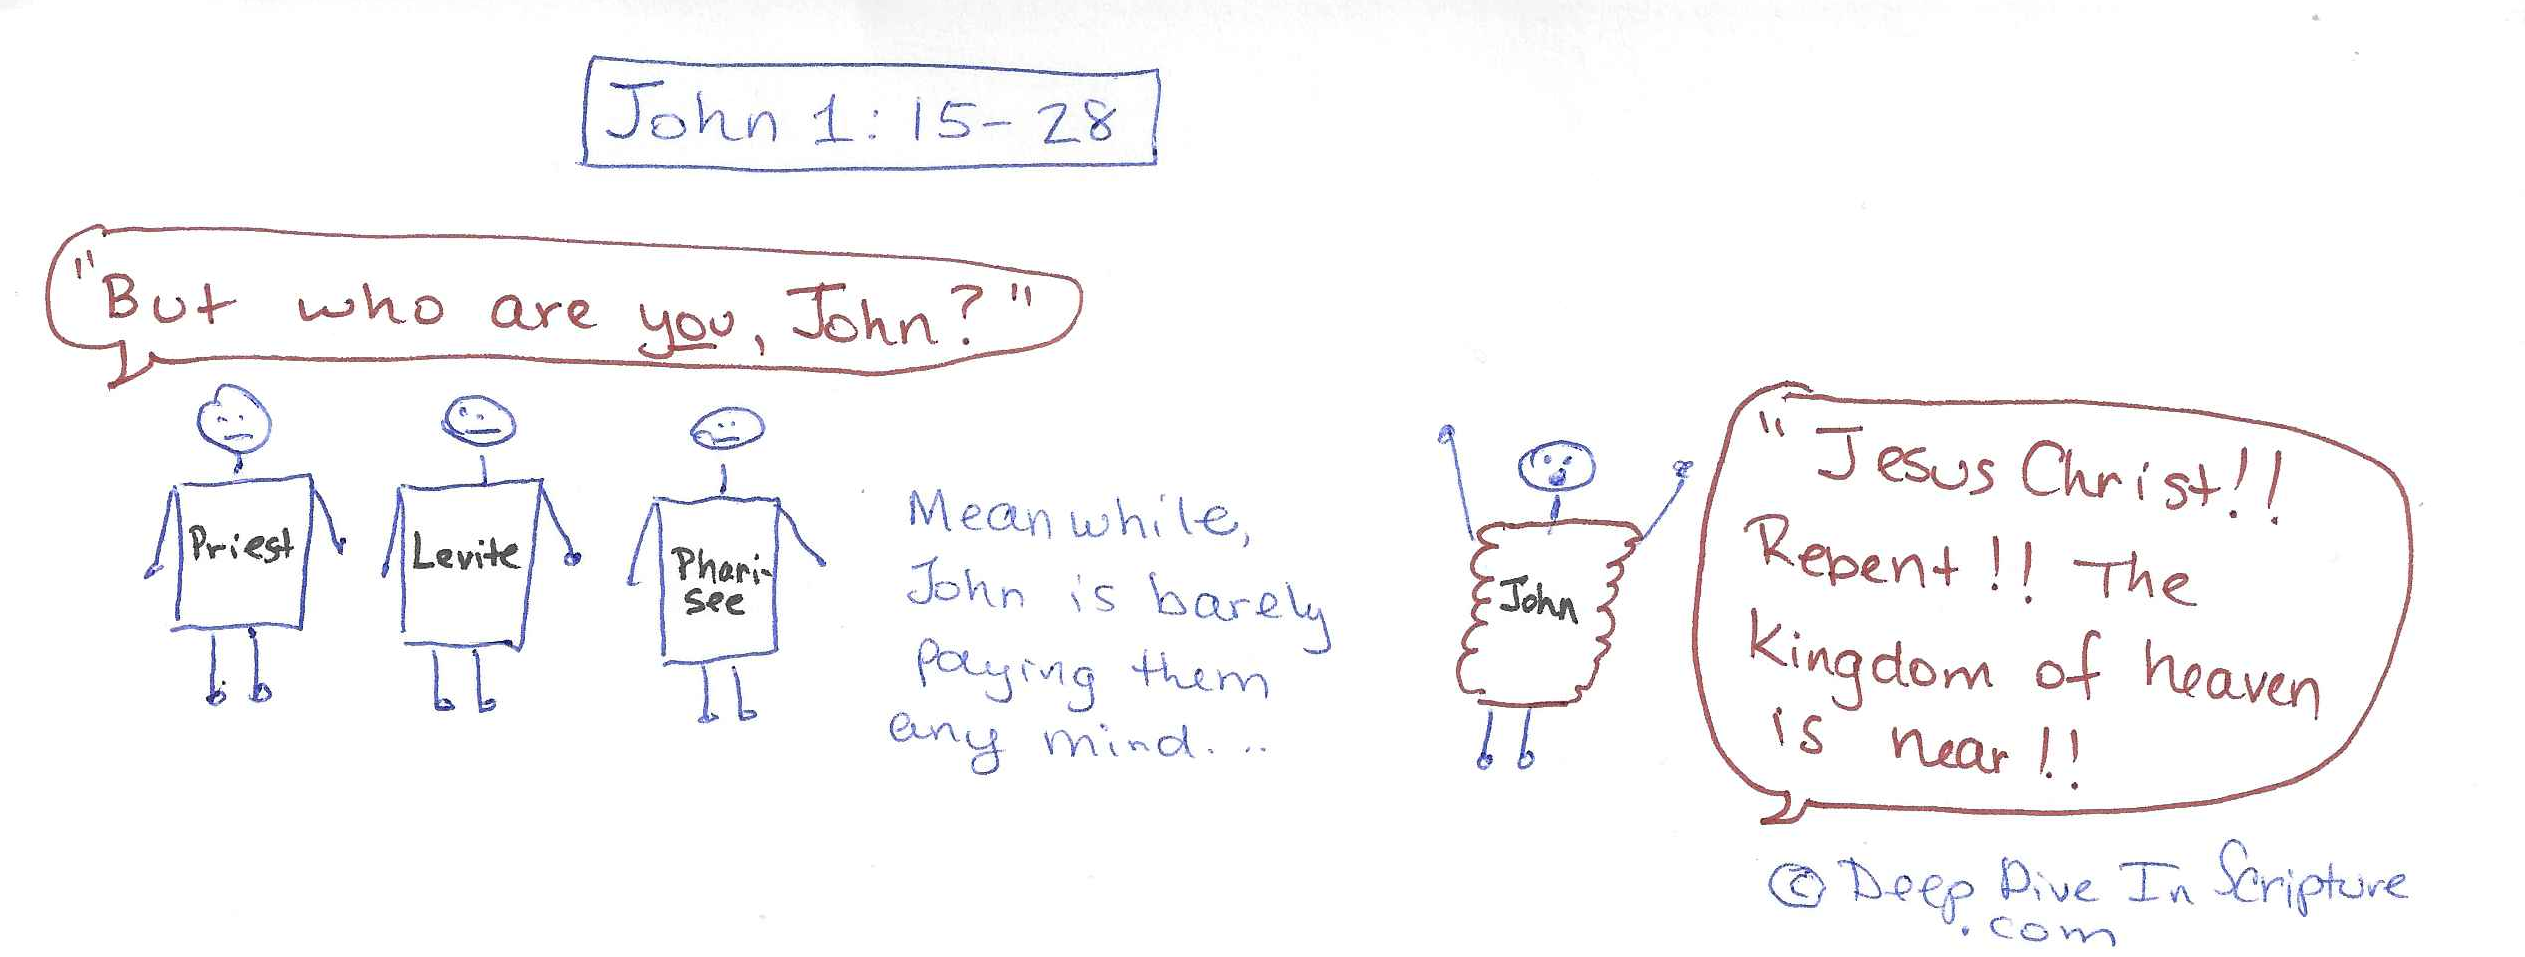 John 1:15-28
"But who are you, John?"
Priest
Levite
Phari-
see
Meanwhile,
John is barely
paying them
any mind...
John
"Jesus Christ!!
Repent!! The
Kingdom of heaven
is near!!
© Deep Dive In Scripture
.com